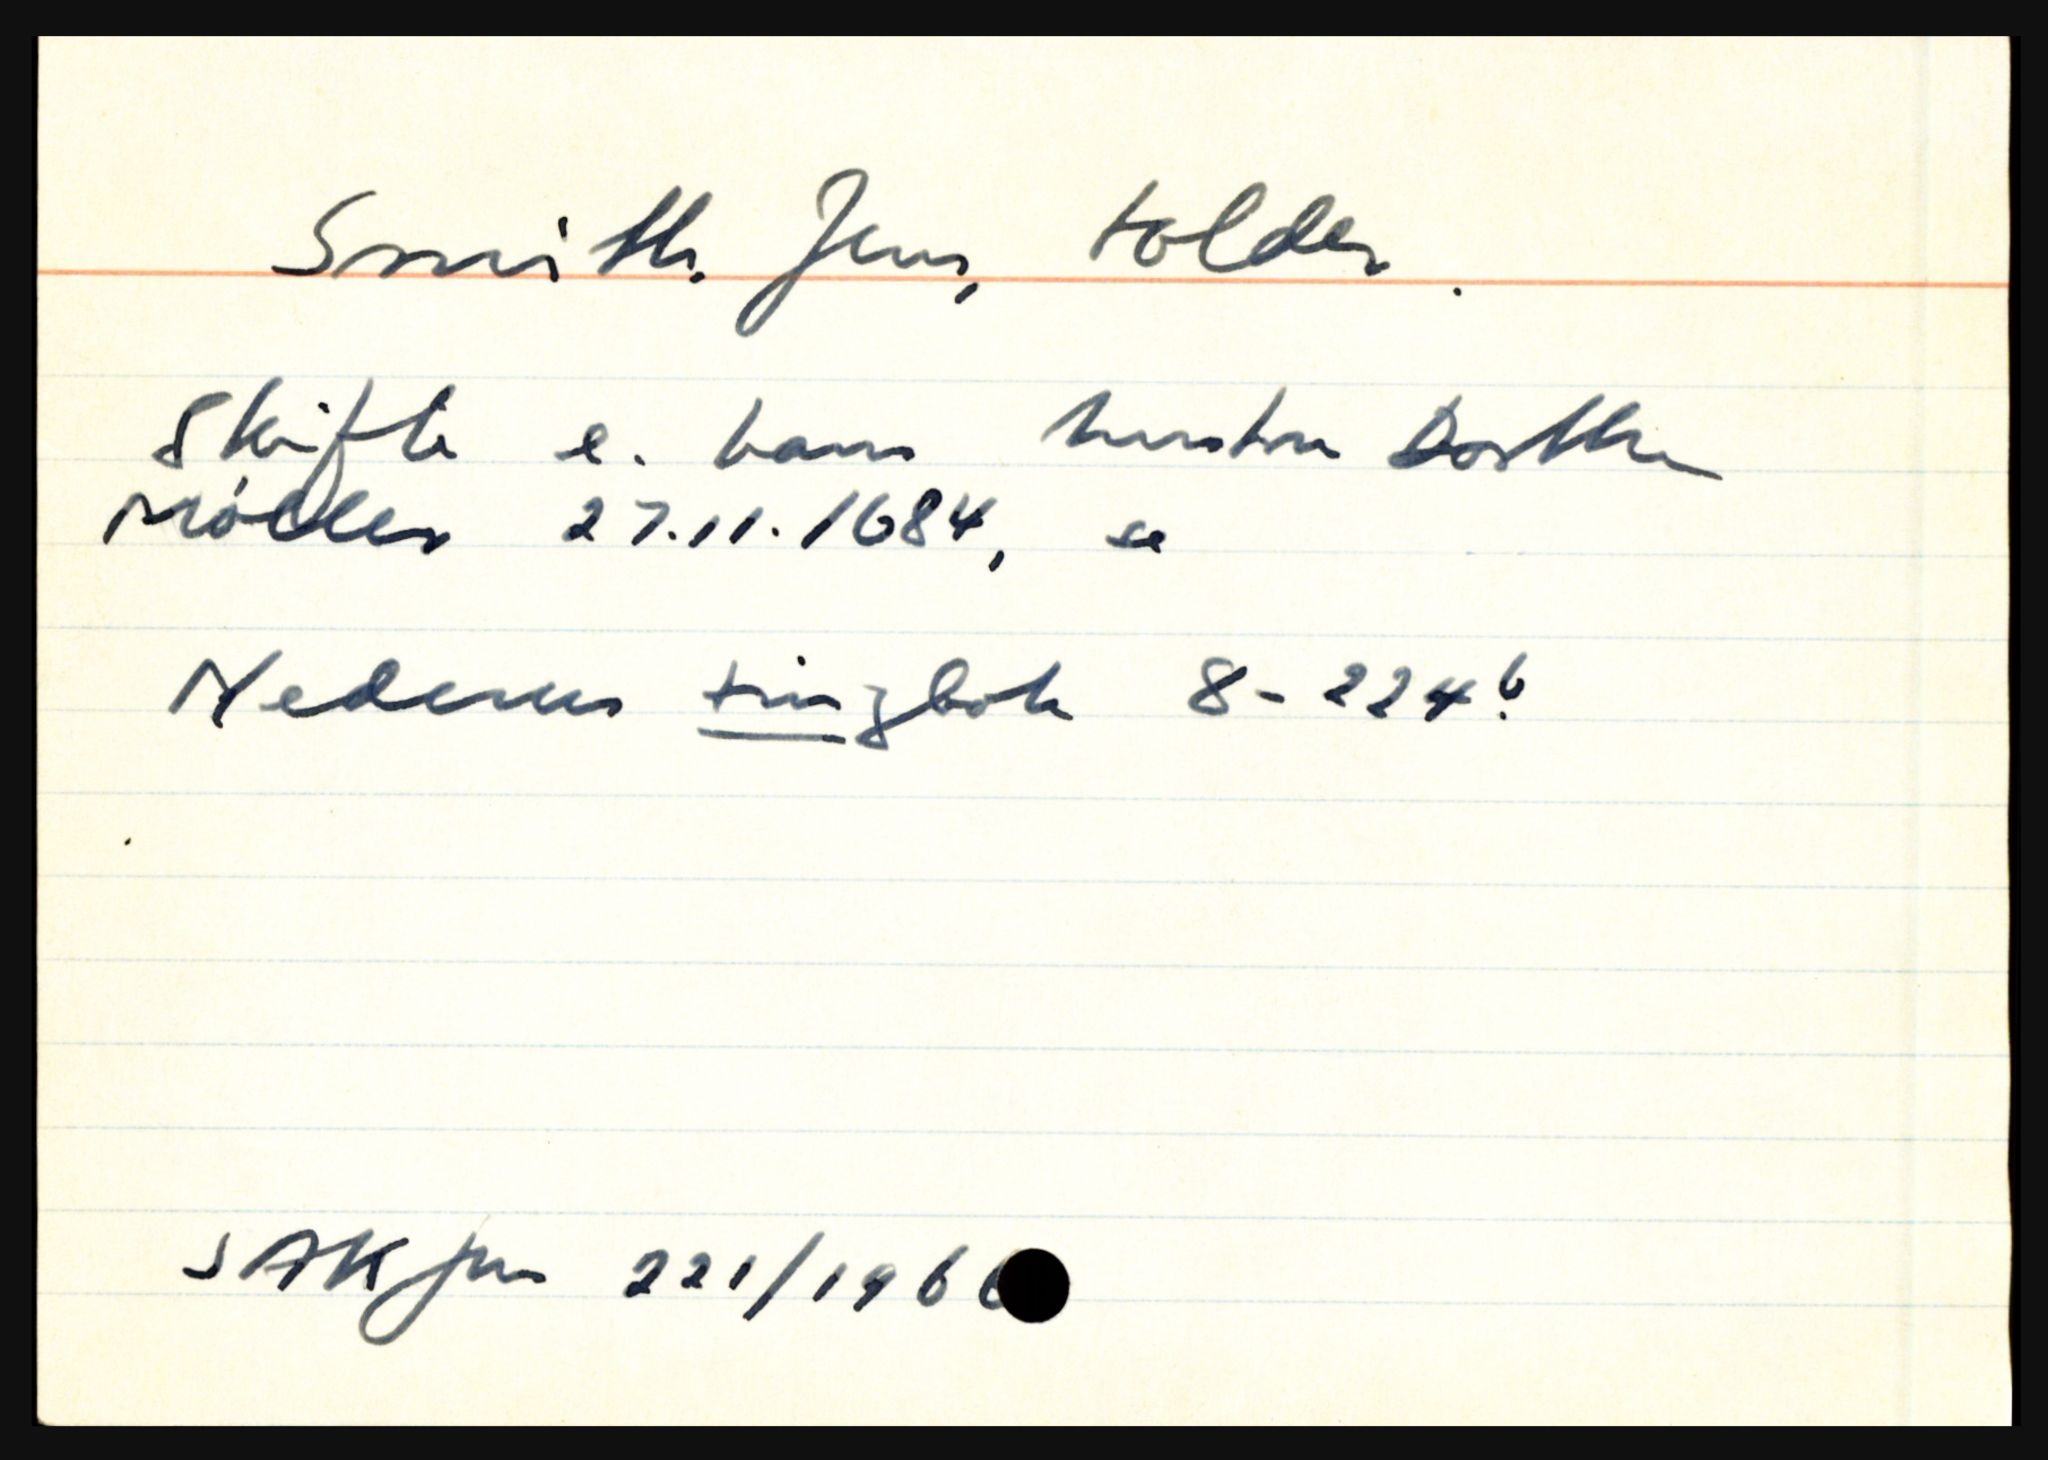 Smith, Jens, tolder.
Skifte e. hans hustru Dorthe
Møller 27.11.1684, se
Nedenes tingbok 8-224b.
SAK jnr 221/1966